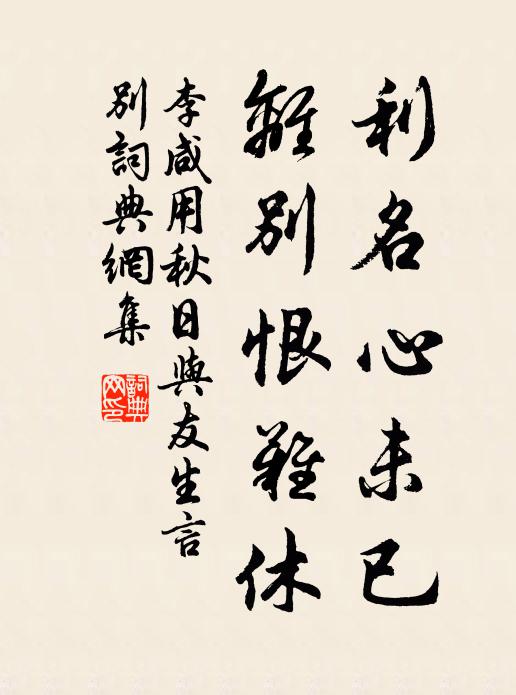 利名心未已
離別恨難休
李咸用秋日與友生言
別詞典網集
詞典
网印